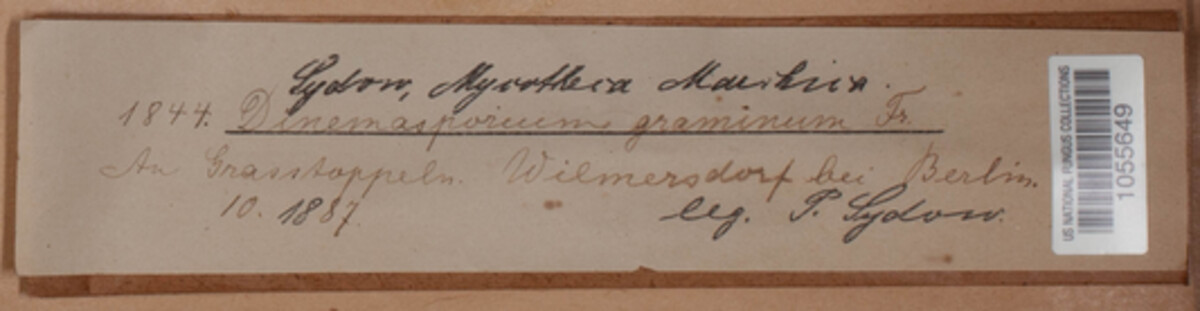 Sydow, Mycotheca Marchica.
1844. Dinemasporium graminum Fr.
An Grasstoppeln. Wilmersdorf bei Berlin.
10. 1887. leg. P. Sydow.
US NATIONAL FUNGUS COLLECTIONS
1055649